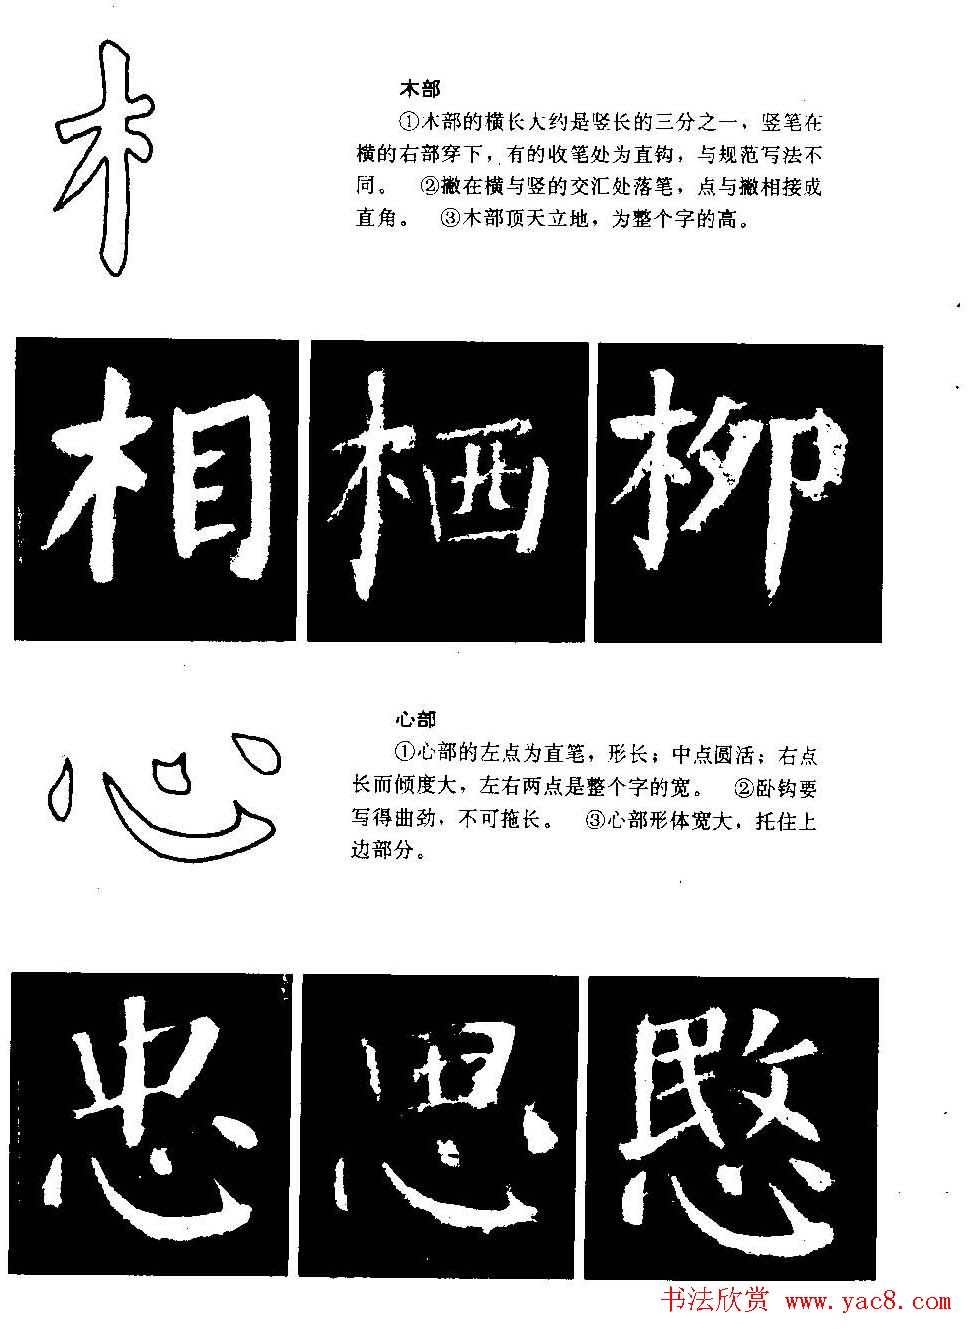 木
木部
①木部的横长大约是竖长的三分之一，竖笔在
横的右部穿下，有的收笔处为直钩，与规范写法不
同。　②撇在横与竖的交汇处落笔，点与撇相接成
直角。　③木部顶天立地，为整个字的高。
相 栖 柳
心
心部
①心部的左点为直笔，形长；中点圆活；右点
长而倾度大，左右两点是整个字的宽。　②卧钩要
写得曲劲，不可拖长。　③心部形体宽大，托住上
边部分。
忠 思 愍
书法欣赏 www.yac8.com